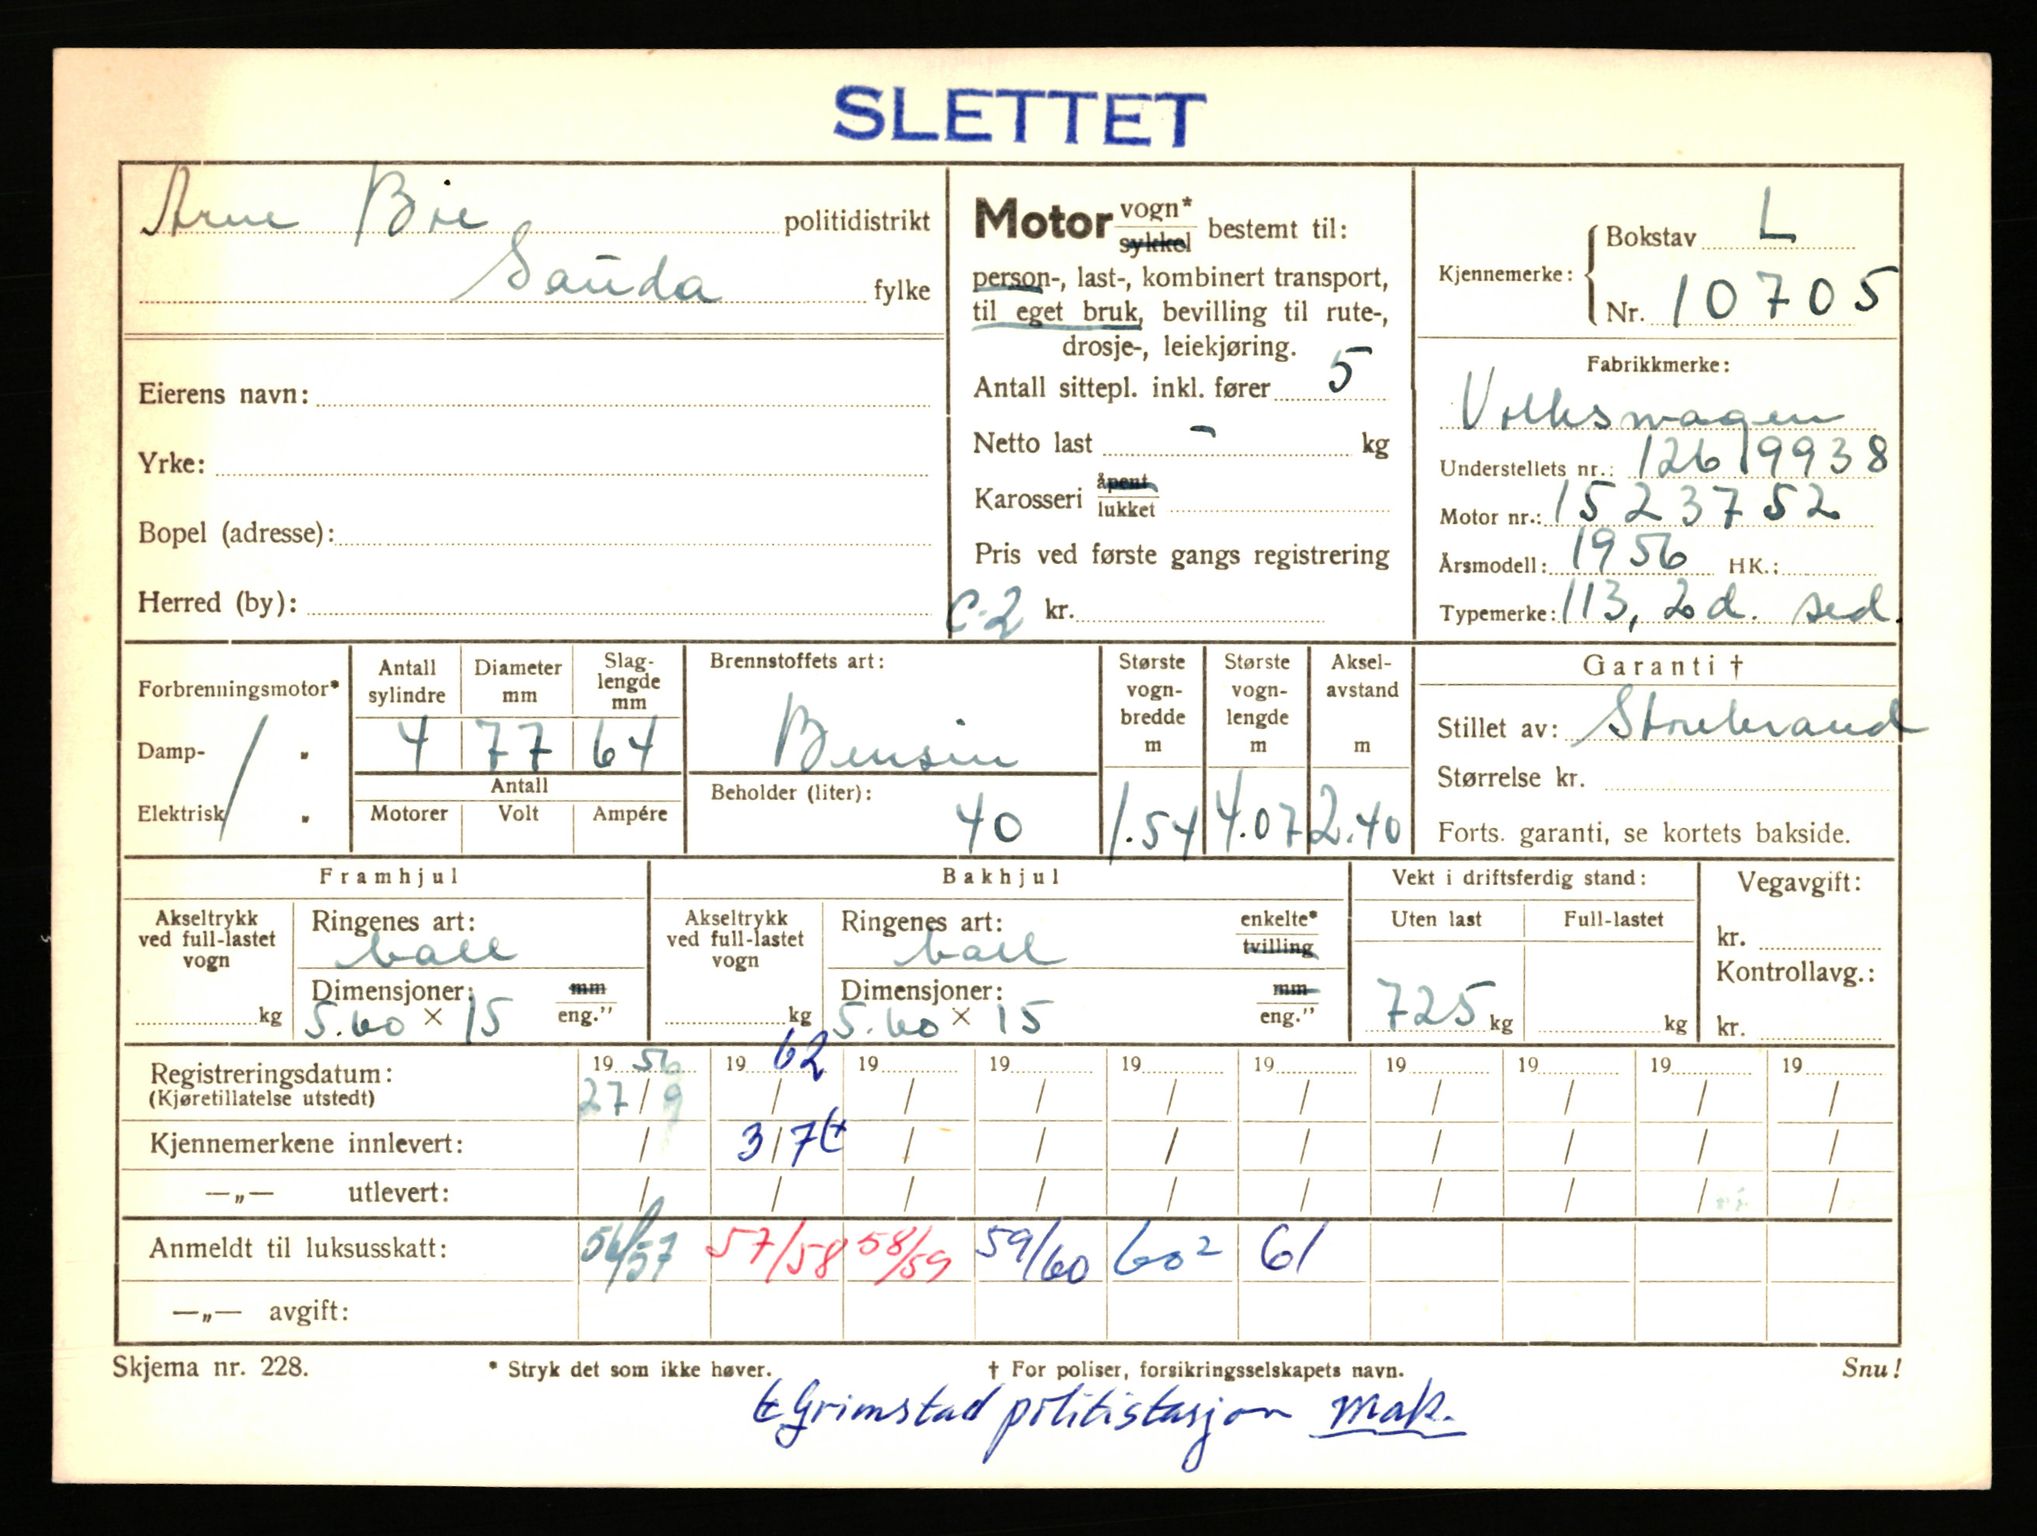 SLETTET
Arne Bøe politidistrikt
Sauda fylke
Eierens navn:
Yrke:
Bopel (adresse):
Herred (by):
Motor vogn* sykkel bestemt til:
person-, last-, kombinert transport,
til eget bruk, bevilling til rute-,
drosje-, leiekjøring.
Antall sittepl. inkl. fører 5
Netto last - kg
Karosseri åpent lukket
Pris ved første gangs registrering
C-2 kr.
Kjennemerke: Bokstav L
Nr. 10705
Fabrikkmerke:
Volkswagen
Understellets nr.: 12619938
Motor nr.: 1523752
Årsmodell: 1956 HK.:
Typemerke: 113, 2d. sed.
Forbrenningsmotor*
Damp- "
Elektrisk "
Antall sylindre
4
Diameter mm
77
Slag-
lengde
mm
64
Antall
Motorer Volt Ampére
Brennstoffets art:
Bensin
Beholder (liter):
40
Største
vogn-
bredde
m
1.54
Største
vogn-
lengde
m
4.07
Aksel-
avstand
m
2.40
Garanti †
Stillet av: Storebrand
Størrelse kr.
Forts. garanti, se kortets bakside.
Framhjul
Akseltrykk
ved full-lastet
vogn
kg
Ringenes art:
ball
Dimensjoner: mm
5.60 × 15 eng."
Bakhjul
Akseltrykk
ved full-lastet
vogn
kg
Ringenes art: enkelte*
ball tvilling
Dimensjoner: mm
5.60 × 15 eng."
Vekt i driftsferdig stand:
Uten last Full-lastet
725 kg kg
Vegavgift:
kr.
Kontrollavg.:
kr.
19 56 19 62 19 19 19 19 19 19 19 19
Registreringsdatum: 27/9 / / / / / / / / /
(Kjøretillatelse utstedt)
Kjennemerkene innlevert: / 3/7 t / / / / / / / /
—„— utlevert: / / / / / / / / / /
Anmeldt til luksusskatt: 56/57 57/58 58/59 59/60 60² 61
—„— avgift:
Skjema nr. 228. * Stryk det som ikke høver. † For poliser, forsikringsselskapets navn. Snu!
t Grimstad politistasjon mak.